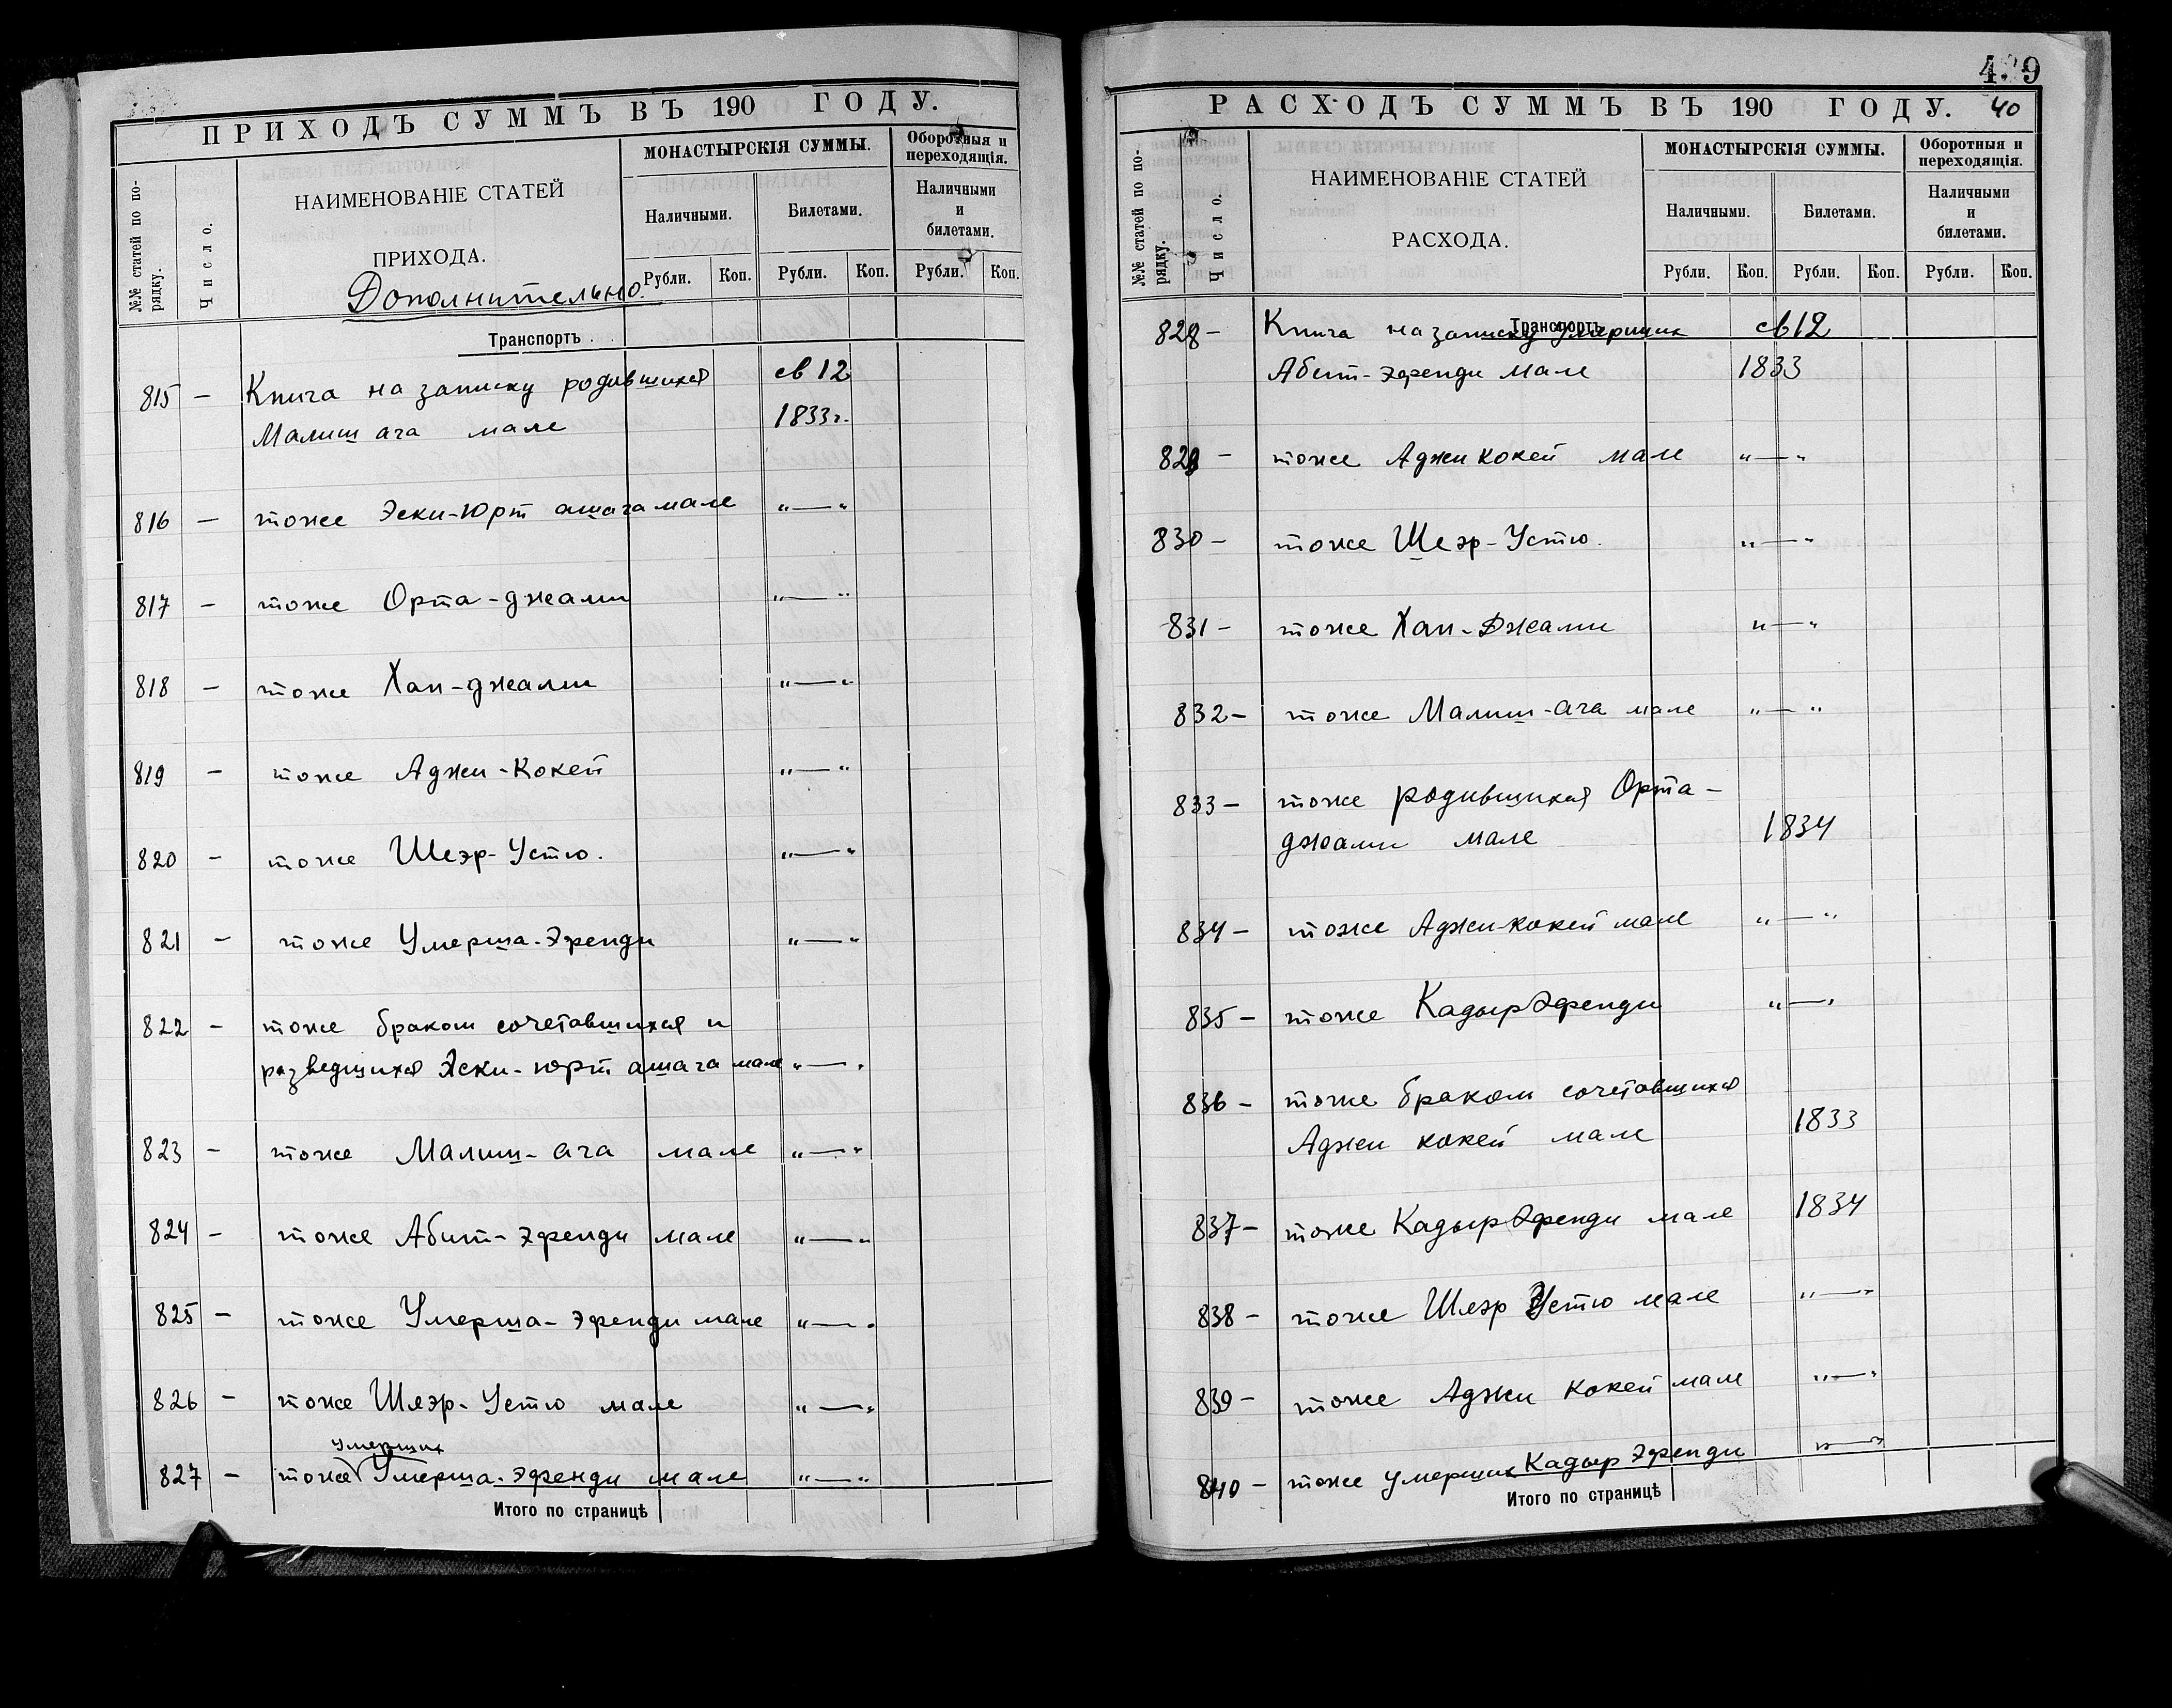 ПРИХОДЪ СУММЪ ВЪ 190 ГОДУ.
№№ статей по порядку.
Число.
НАИМЕНОВАНІЕ СТАТЕЙ
ПРИХОДА.
МОНАСТЫРСКІЯ СУММЫ.
Оборотныя и
переходящія.
Наличными.
Билетами.
Наличными
и
билетами.
Рубли. Коп. Рубли. Коп. Рубли. Коп.
Дополнительно.
Транспортъ . .
815 — Книга на записку родившихся св 12
Малиш ага мале 1833 г.
816 — тоже Эски-Юрт ашага мале "—"
817 — тоже Орта-джами "—"
818 — тоже Хан-джами "—"
819 — тоже Аджи-Кокей "—"
820 — тоже Шеэр-Устю. "—"
821 — тоже Умерша-Эфенди "—"
822 — тоже браком сочетавшихся и
разведшихся Эски-юрт ашага мале "—"
823 — тоже Малиш-ага мале "—"
824 — тоже Абит-эфенди мале "—"
825 — тоже Умерша-эфенди мале "—"
826 — тоже Шеэр-Устю мале "—"
умерших
827 — тоже Умерша-эфенди мале "—"
Итого по страницѣ
40
РАСХОДЪ СУММЪ ВЪ 190 ГОДУ.
№№ статей по порядку.
Число.
НАИМЕНОВАНІЕ СТАТЕЙ
РАСХОДА.
МОНАСТЫРСКІЯ СУММЫ.
Оборотныя и
переходящія.
Наличными.
Билетами.
Наличными
и
билетами.
Рубли. Коп. Рубли. Коп. Рубли. Коп.
Транспортъ
828 — Книга на записку умерших св 12
Абит-эфенди мале 1833
829 — тоже Аджи кокей мале "—"
830 — тоже Шеэр-Устю. "—"
831 — тоже Хан-Джами "—"
832 — тоже Малиш-ага мале "—"
833 — тоже родившихся Орта-
джами мале 1834
834 — тоже Аджи-кокей мале "—"
835 — тоже Кадыр Эфенди "—"
836 — тоже браком сочетавшихся
Аджи кокей мале 1833
837 — тоже Кадыр Эфенди мале 1834
838 — тоже Шеэр Устю мале "—"
839 — тоже Аджи Кокей мале "—"
840 — тоже умерших Кадыр Эфенди "—"
Итого по страницѣ